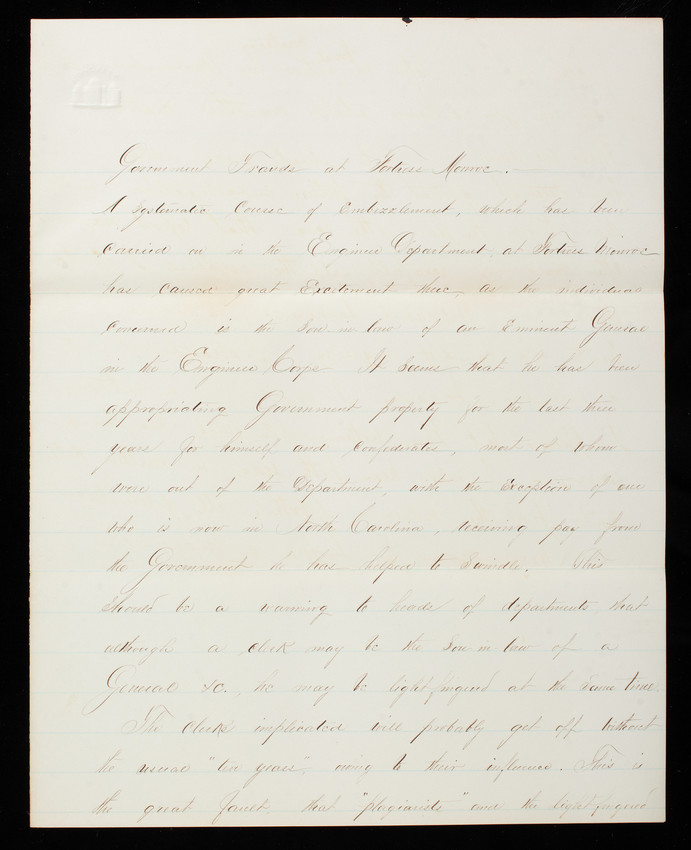 Government Frauds at Fortress Monroe.
A systematic Course of Embezzlement, which has been
carried on in the Engineer Department, at Fortress Monroe
has caused great Excitement there, as the individual
concerned is the Son in law of an Eminent General
in the Engineer Corps. It seems that he has been
appropriating Government property for the last three
years for himself and confederates, most of whom
were out of the Department, with the Exception of one
who is now in North Carolina, receiving pay from
the Government he has helped to Swindle. This
should be a warning to heads of departments that
although a clerk may be the Son in law of a
General &c., he may be light fingered at the same time.
The clerks implicated will probably get off without
the usual "ten years", owing to their influence. This is
the great fault, that "plagiarists" and the light fingered